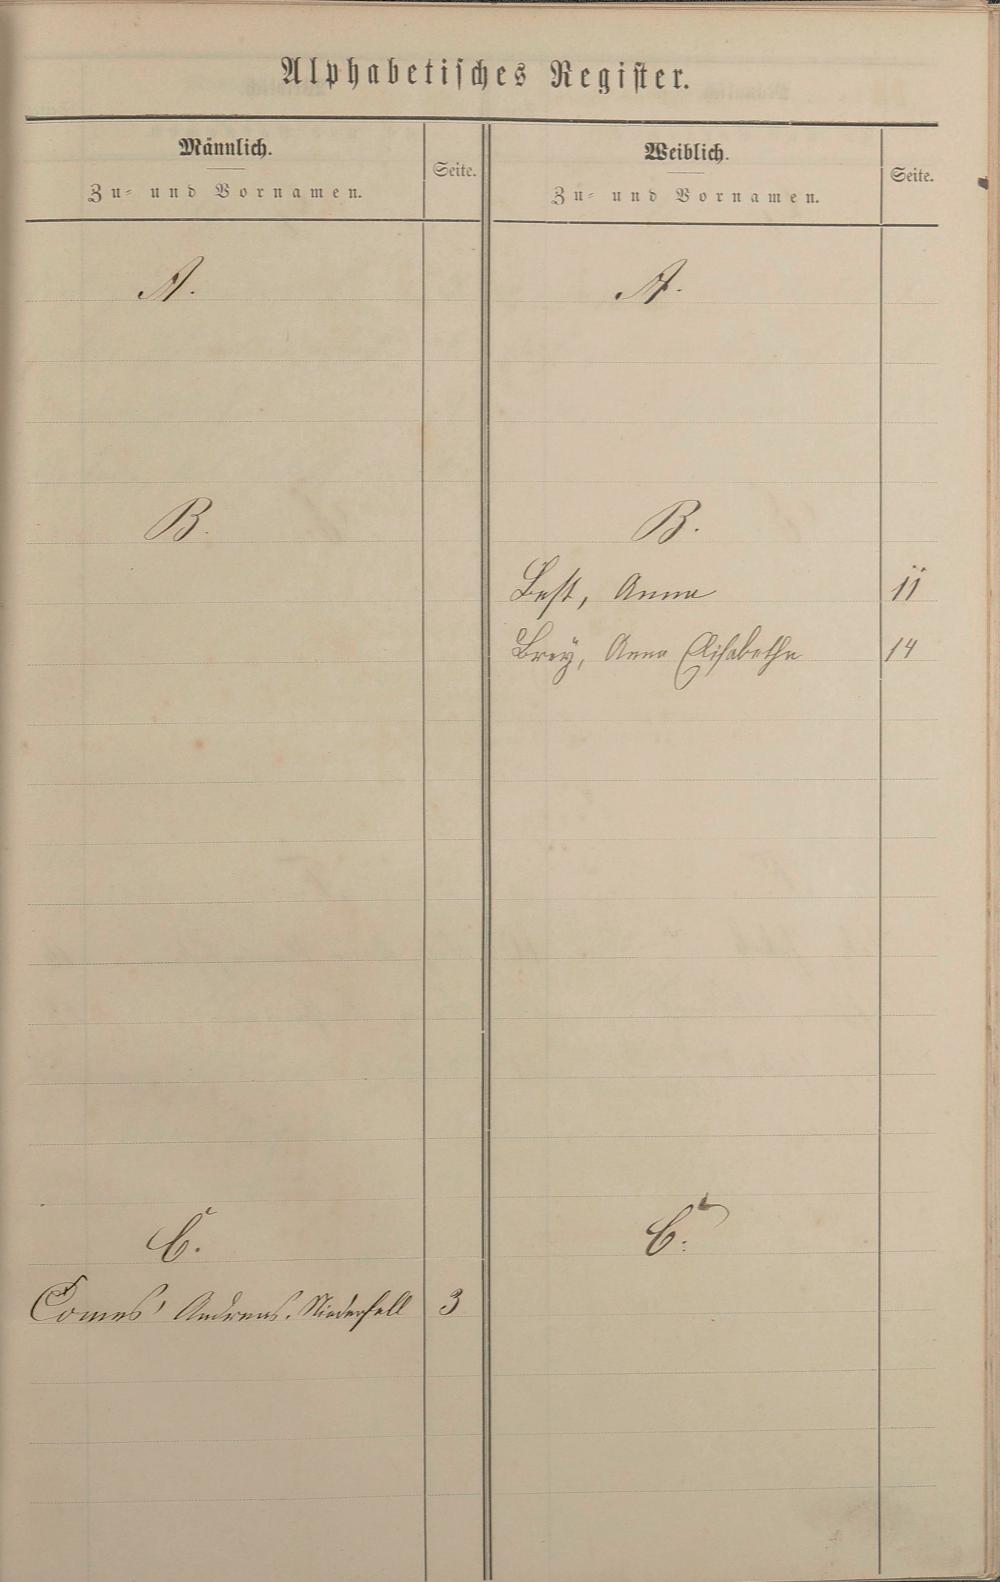 Alphabetisches Register.
Männlich.
Zu- und Vornamen.
Seite.
Weiblich.
Zu- und Vornamen.
Seite.
A.
A.
B.
B.
Best, Anna
11
Brey, Anna Elisabetha
14
C.
C.
Comes, Andreas. Niederfell
3